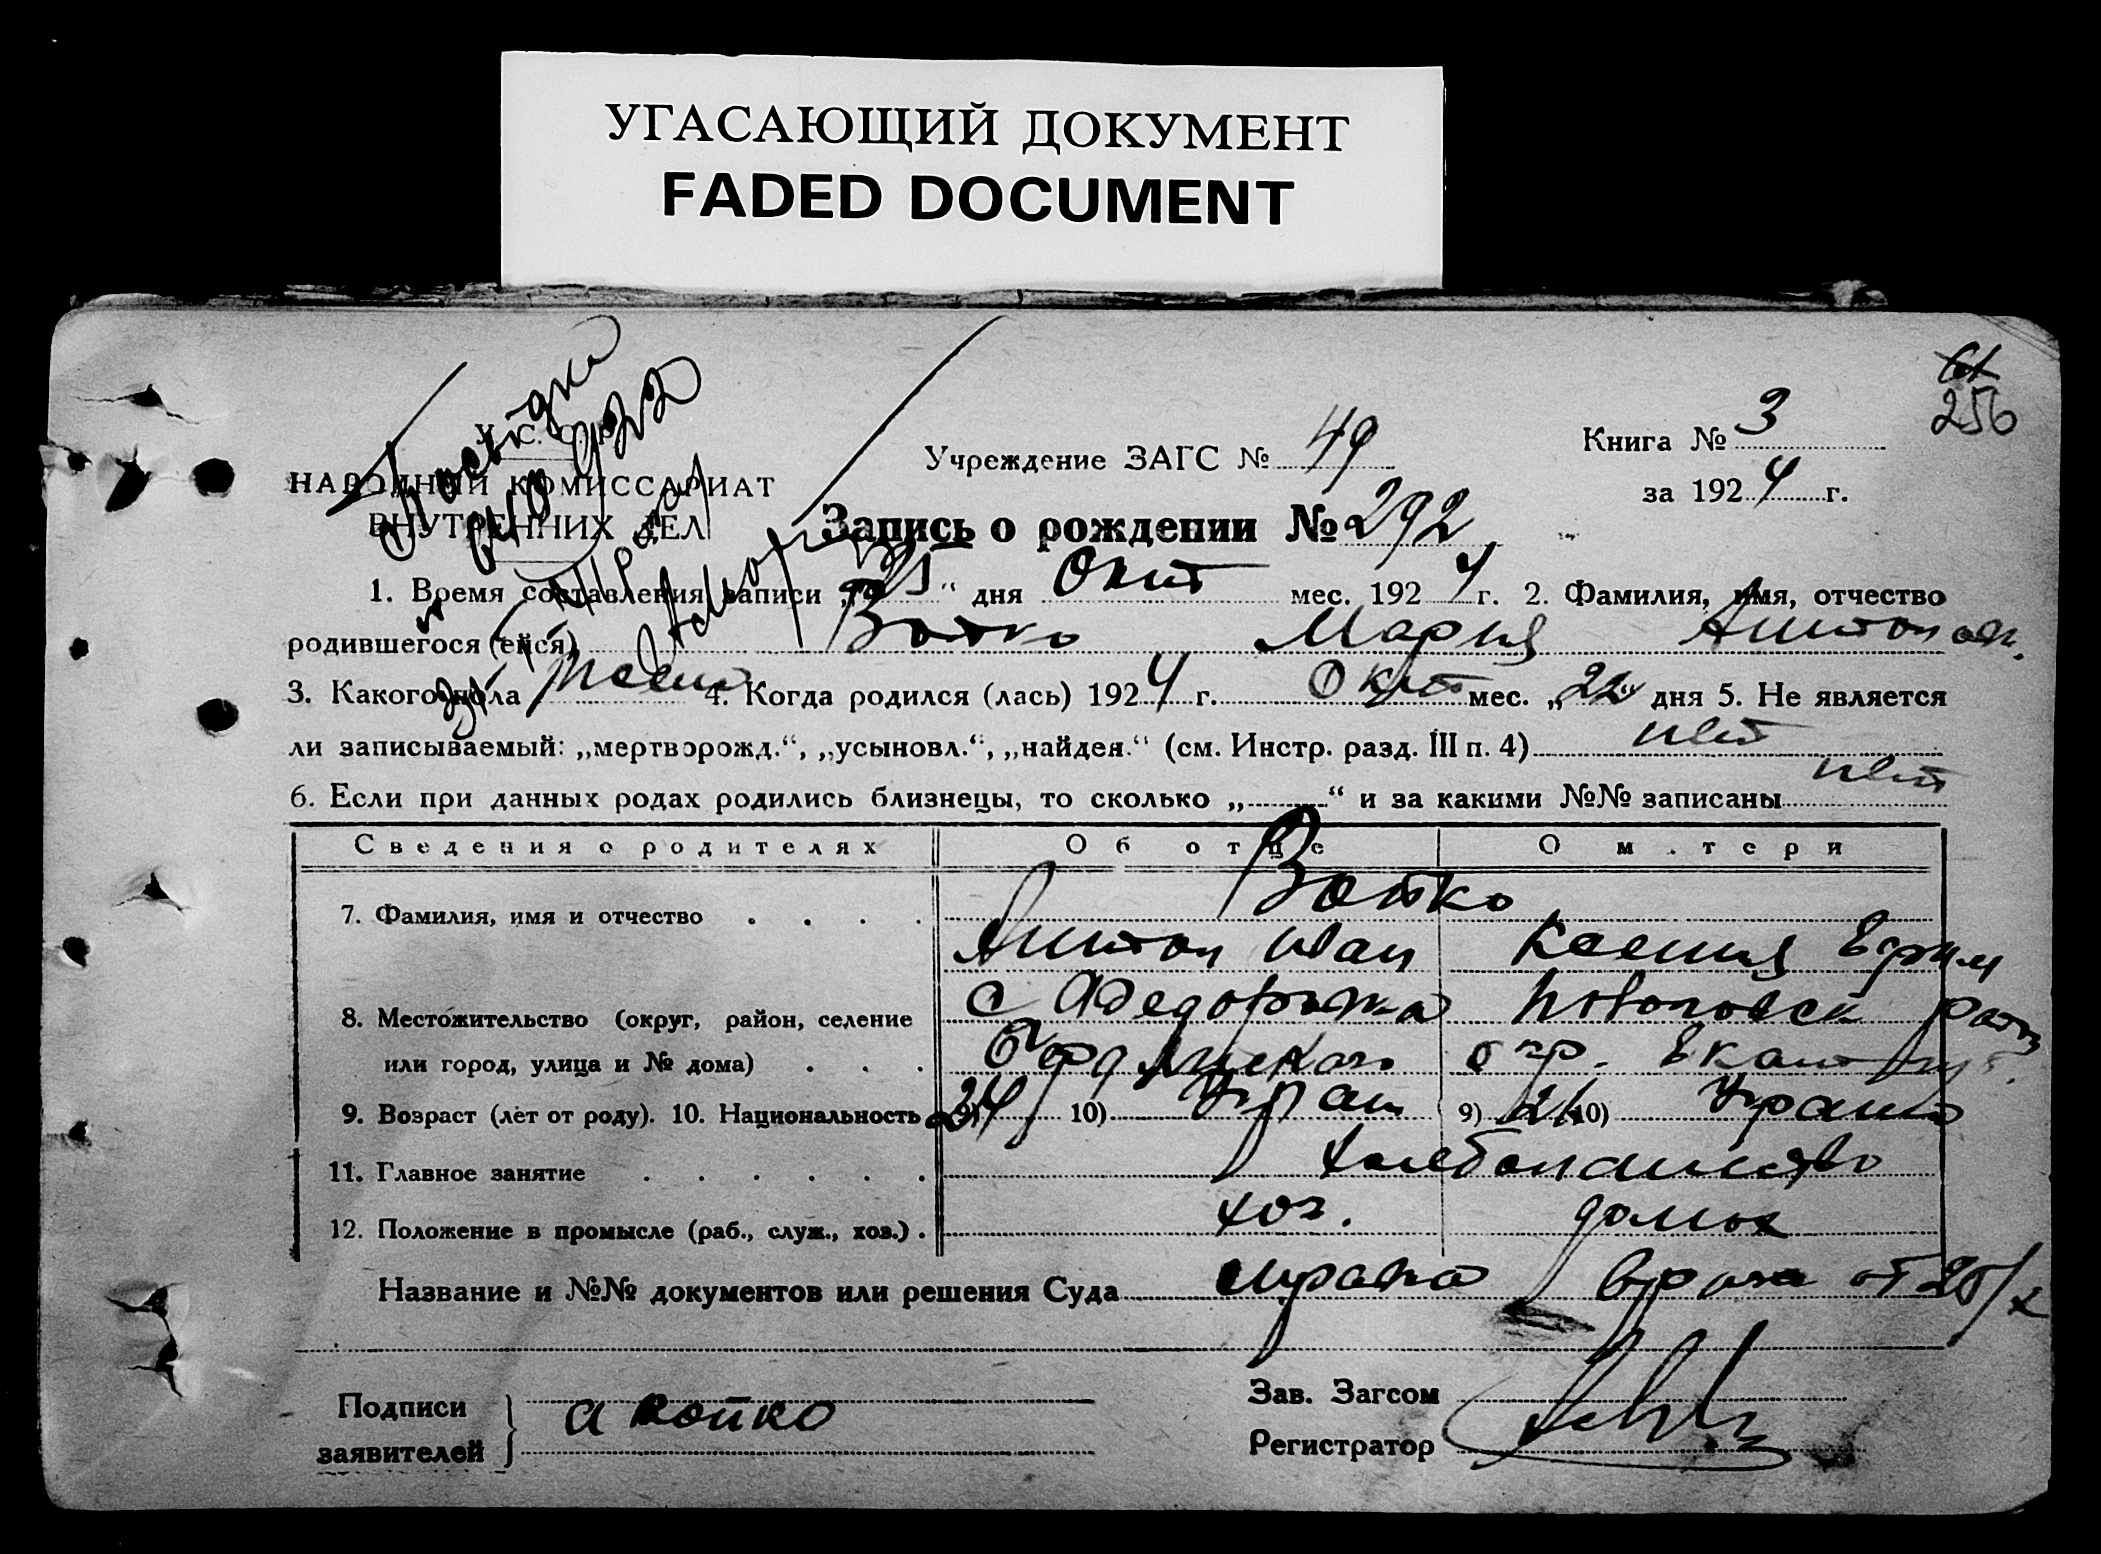 УГАСАЮЩИЙ ДОКУМЕНТ
FADED DOCUMENT
256
У. С. С. Р.
НАРОДНЫЙ КОМИССАРИАТ
ВНУТРЕННИХ ДЕЛ
Учреждение ЗАГС № 49
Книга № 3
за 1924 г.
Запись о рождении № 292
1. Время составления записи „25“ дня Окт мес. 1924 г. 2. Фамилия, имя, отчество
родившегося (ейся) Вотко Мария Антонов.
3. Какого пола женс 4. Когда родился (лась) 1924 г. Окт мес. „22“ дня 5. Не является
ли записываемый: „мертворожд.“, „усыновл.“, „найден.“ (см. Инстр. разд. III п. 4) нет
6. Если при данных родах родились близнецы, то сколько „ “ и за какими №№ записаны нет
Сведения о родителях Об отце О матери
7. Фамилия, имя и отчество Вотко
Антон Иван Ксения Ефим
8. Местожительство (округ, район, селение с Федоровка
или город, улица и № дома) окр. Екат губ.
9. Возраст (лет от роду). 10. Национальность 9) 24 10) Украин 9) 21 10) Украин
11. Главное занятие хлебопашество
12. Положение в промысле (раб., служ., хоз.) хоз. домох
Название и №№ документов или решения Суда справка врача от 25/X
Подписи
заявителей
А Вотко
Зав. Загсом
Регистратор